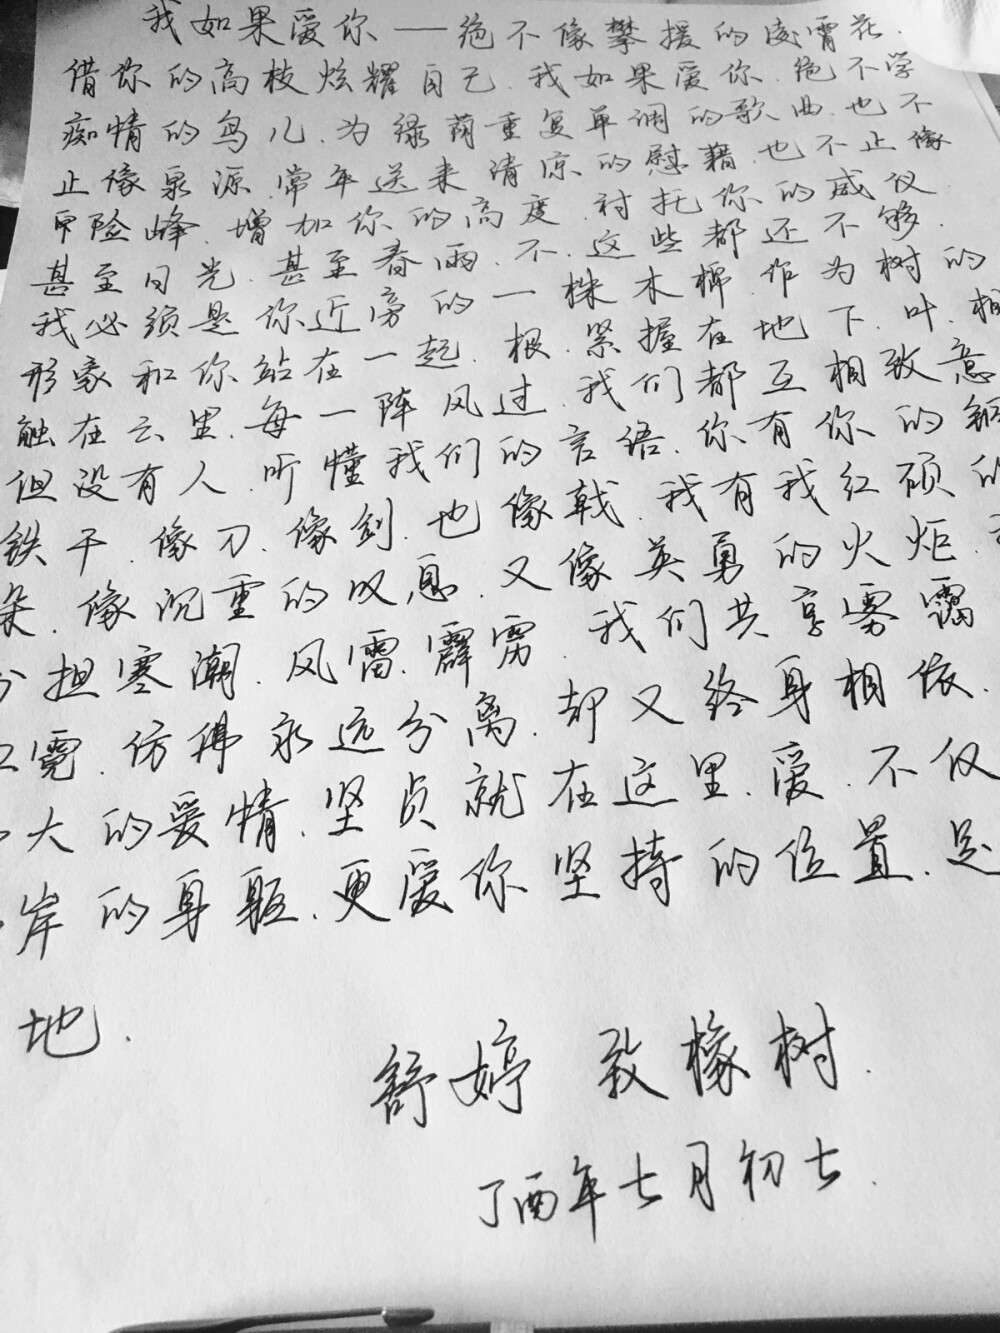 我如果爱你——绝不像攀援的凌霄花.
借你的高枝炫耀自己.我如果爱你.绝不学
痴情的鸟儿.为绿荫重复单调的歌曲.也不
止像泉源.常年送来清凉的慰藉.也不止像
险峰.增加你的高度.衬托你的威仪.
甚至日光.甚至春雨.不.这些都还不够.
我必须是你近旁的一株木棉.作为树的
形象和你站在一起.根.紧握在地下.叶.相
触在云里.每一阵风过.我们都互相致意
但没有人.听懂我们的言语.你有你的
铁干.像刀.像剑.也像戟.我有我红硕的
朵.像沉重的叹息.又像英勇的火炬.
分担寒潮.风雷.霹雳.我们共享雾霭
霓.仿佛永远分离.却又终身相依.
大的爱情.坚贞就在这里.爱.不仅
岸的身躯.更爱你坚持的位置.足
地.
舒婷 致橡树.
丁酉年七月初七.